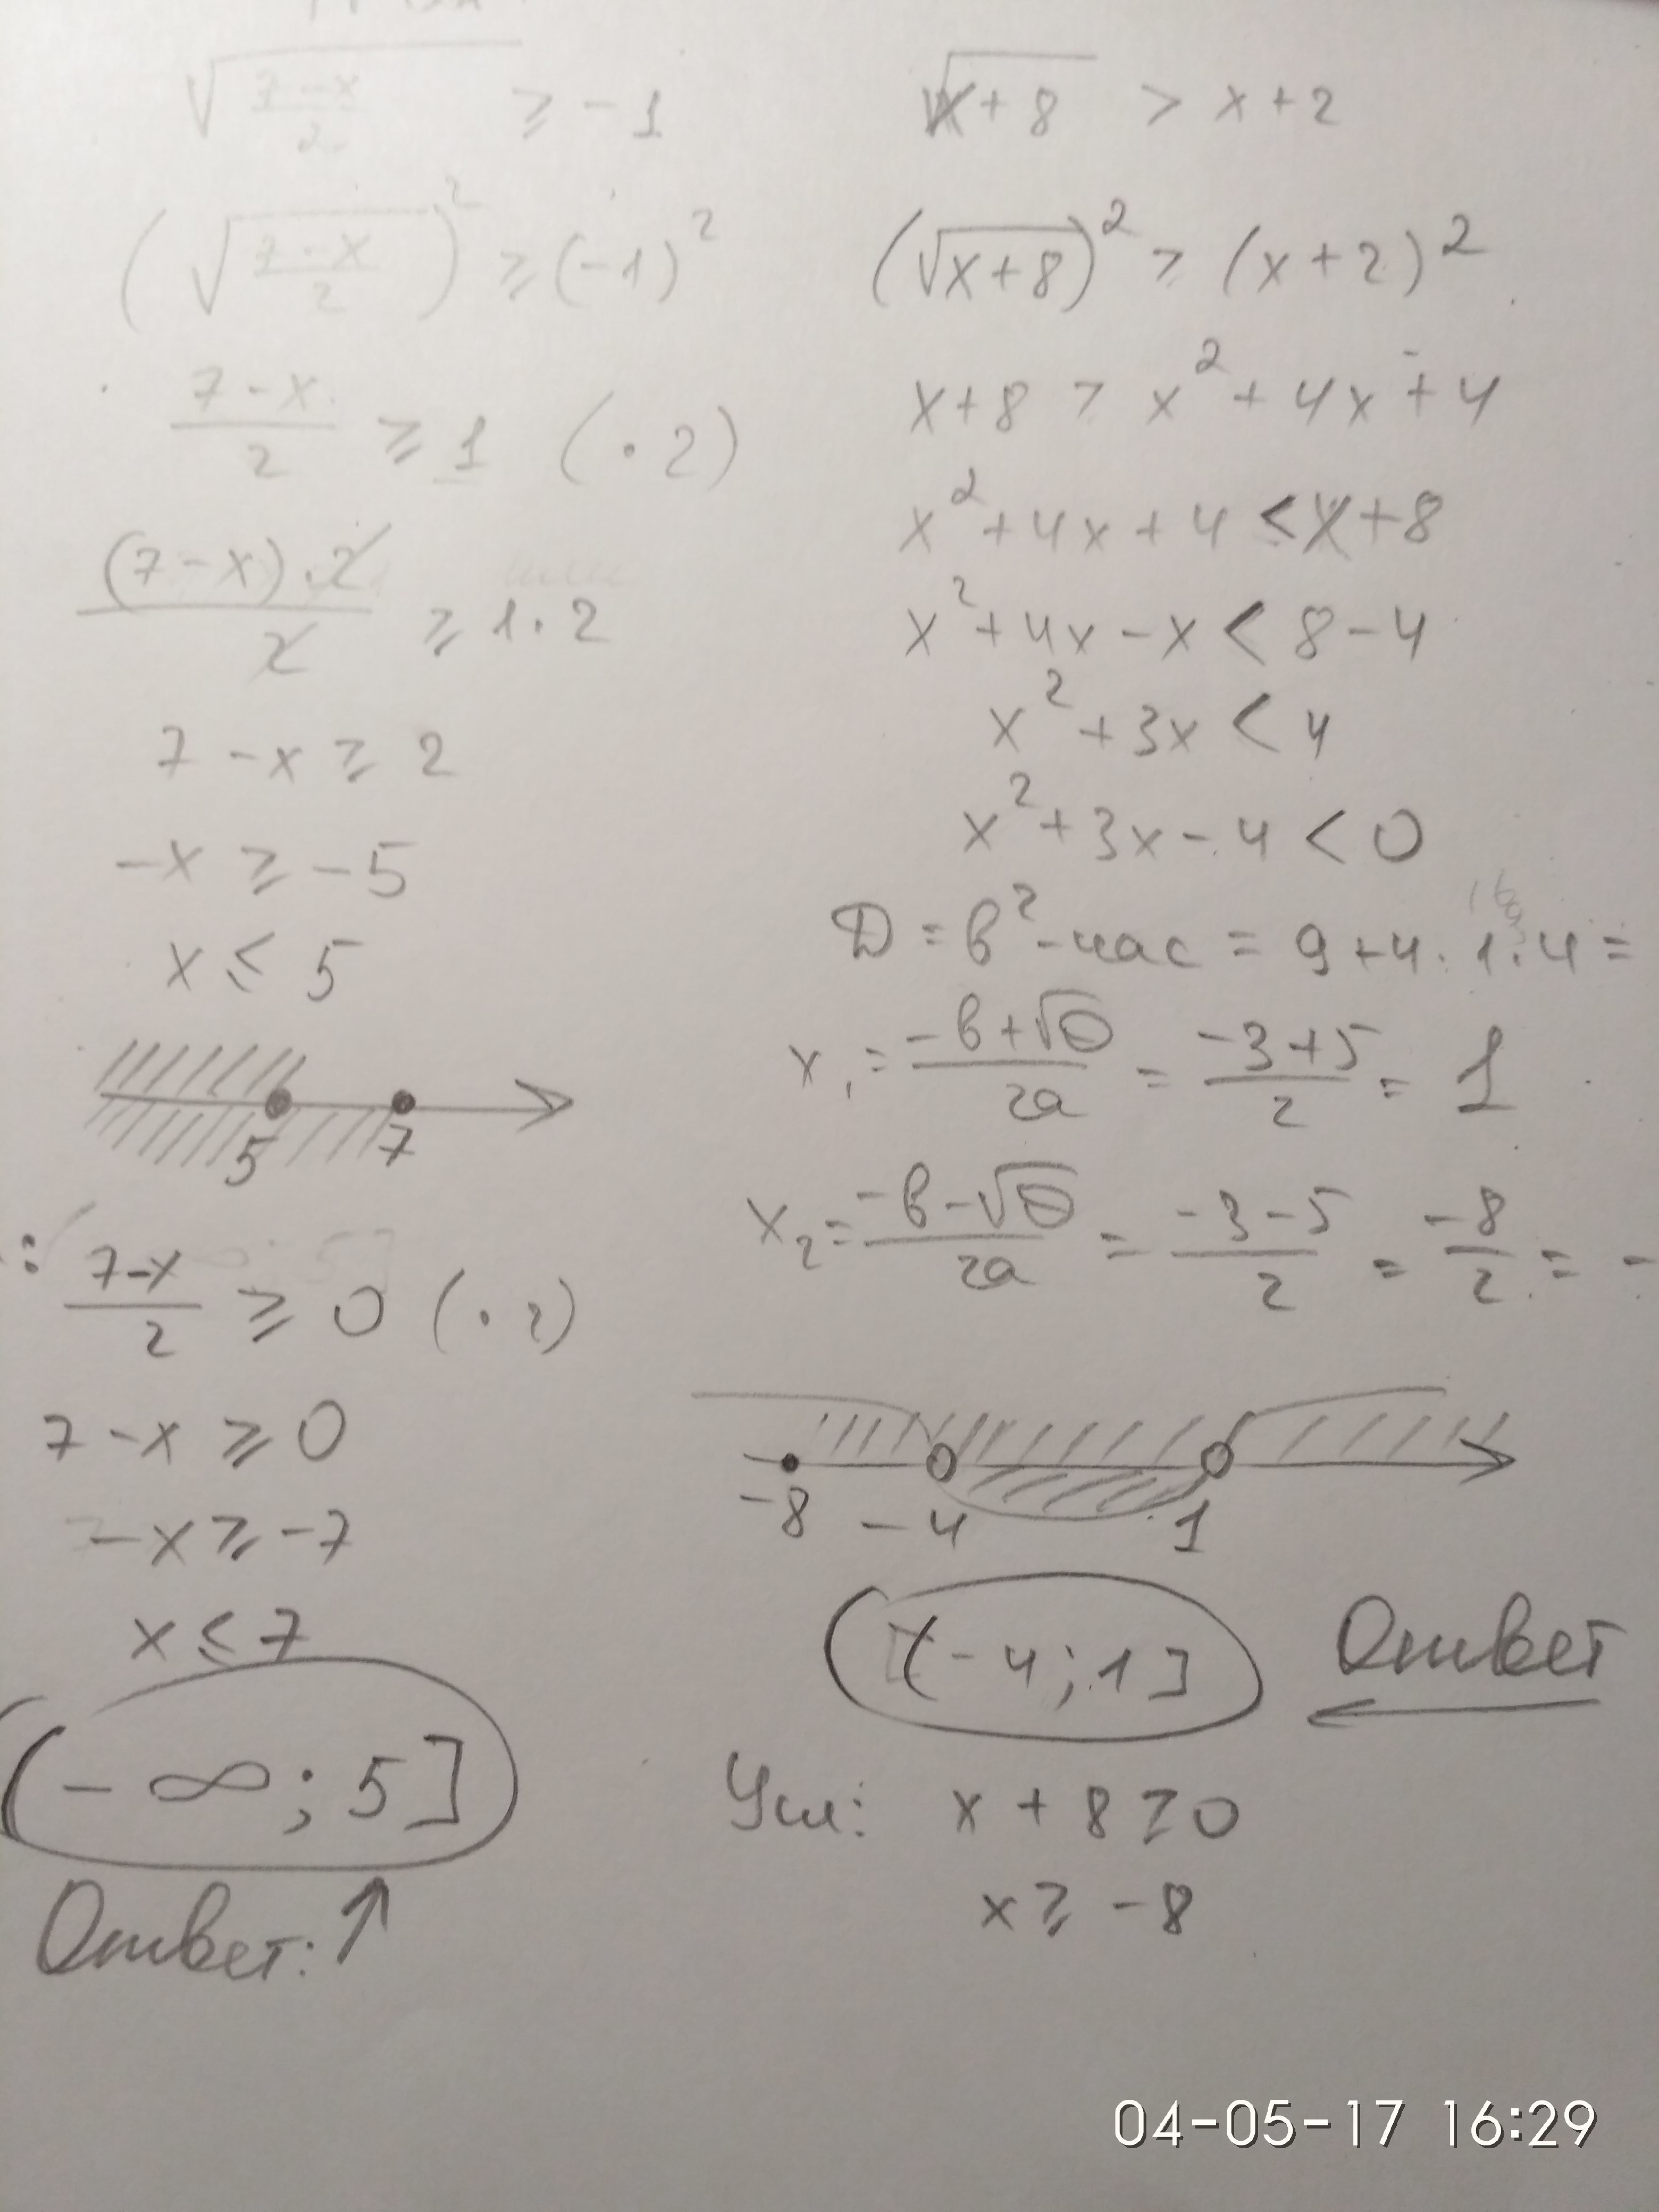 √((7-x)/2) ≥ -1
(√((7-x)/2))² ≥ (-1)²
(7-x)/2 ≥ 1 (·2)
((7-x)·2)/2 ≥ 1·2
7 - x ≥ 2
-x ≥ -5
x ≤ 5
5 7
: (7-x)/2 ≥ 0 (·2)
7 - x ≥ 0
-x ≥ -7
x ≤ 7
(-∞; 5]
Ответ: ↑
√(x+8) > x+2
(√(x+8))² ≥ (x+2)²
x+8 > x²+4x+4
x²+4x+4 < x+8
x²+4x-x < 8-4
x²+3x < 4
x²+3x-4 < 0
D = b²-4ac = 9+4·1·4 =
x₁ = (-b+√D)/2a = (-3+5)/2 = 1
x₂ = (-b-√D)/2a = (-3-5)/2 = -8/2 = -
-8 -4 1
(-4; 1] Ответ
Усл: x + 8 ≥ 0
x ≥ -8
04-05-17 16:29